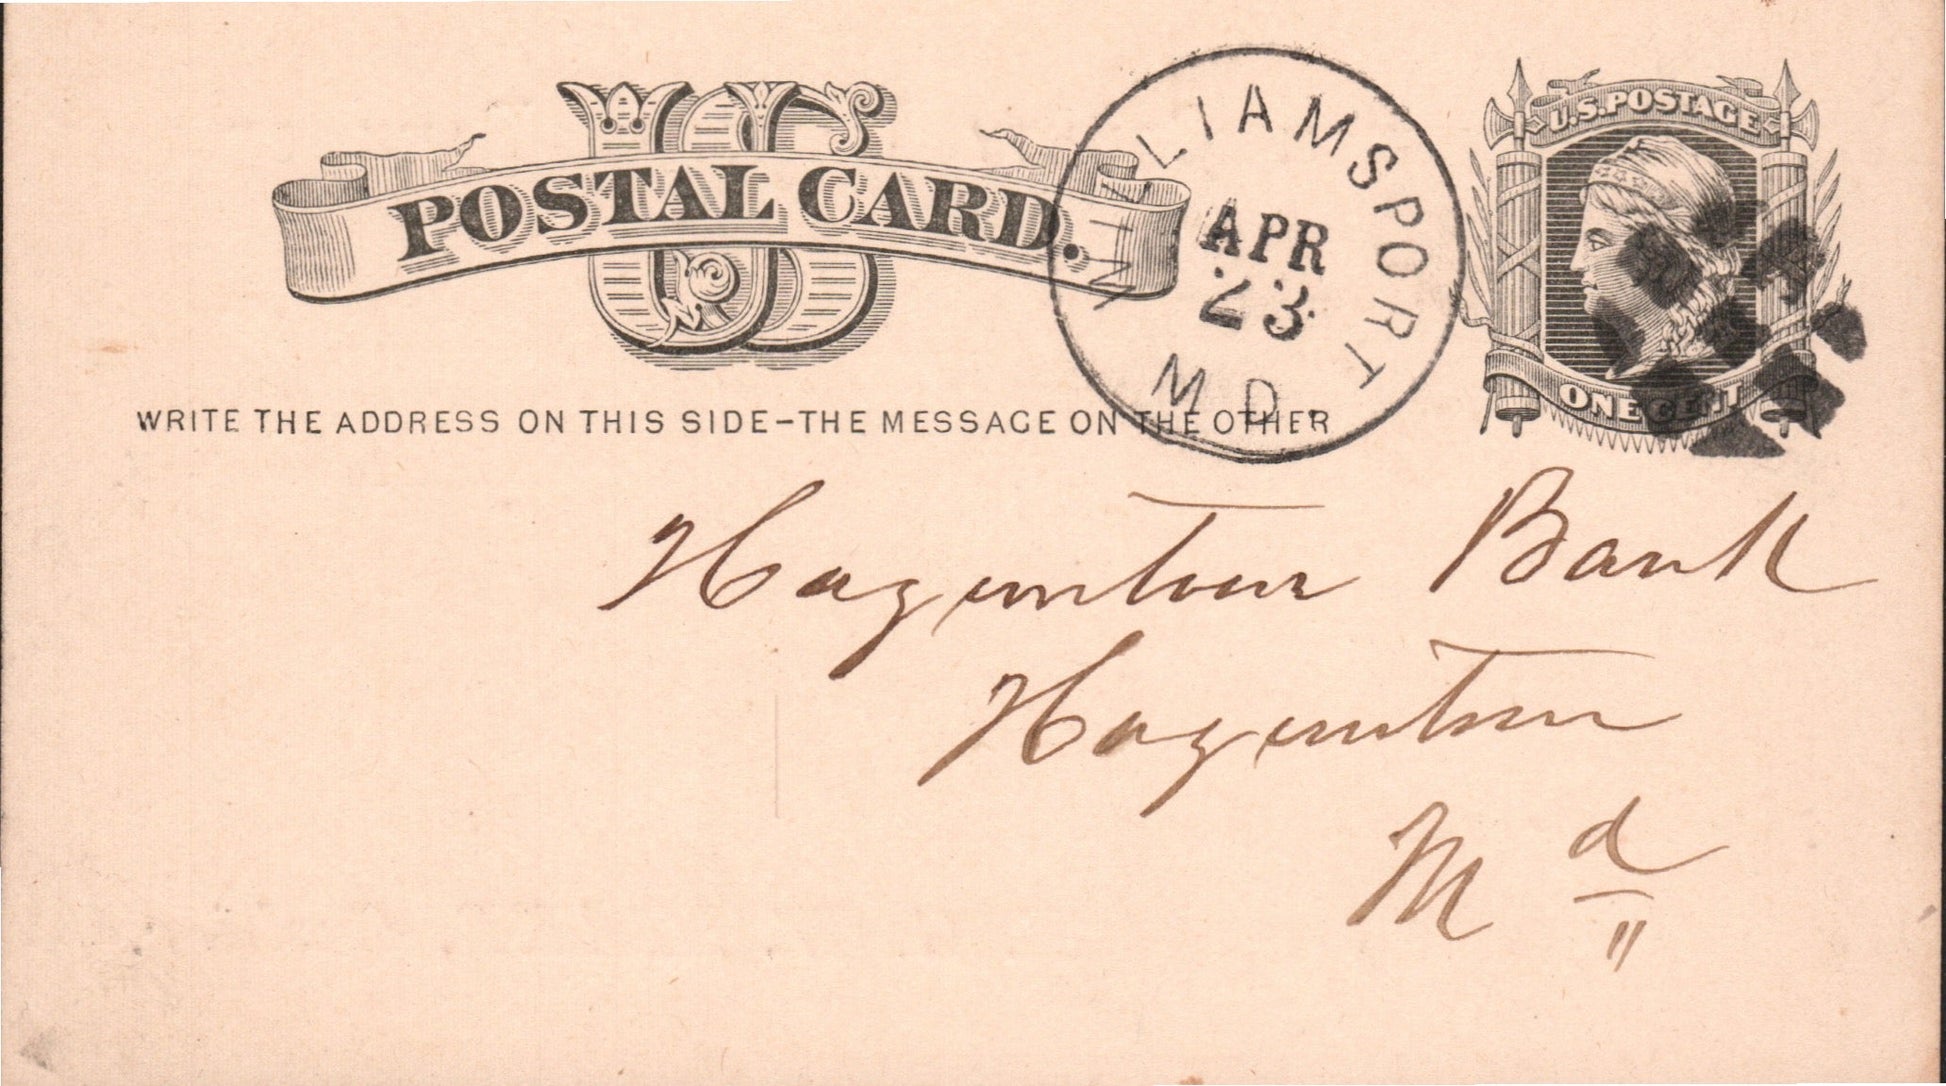 US
POSTAL CARD.
WILLIAMSPORT
APR
23
MD.
U.S. POSTAGE
ONE CENT
WRITE THE ADDRESS ON THIS SIDE-THE MESSAGE ON THE OTHER
Hagerstown Bank
Hagerstown
Md